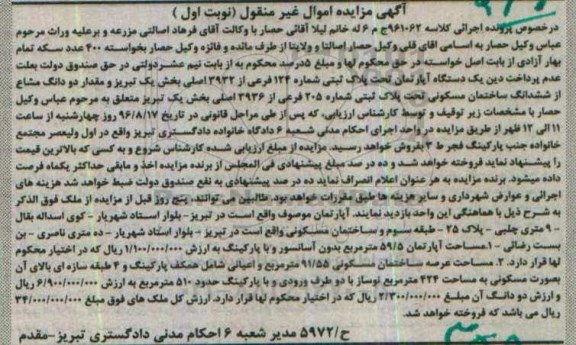 آگهی مزایده اموال غیر منقول (نوبت اول )
درخصوص پرونده اجرائی کلاسه ۹۶۱۰۶۲ج م ۶ له خانم لیلا آقائی حصار با وکالت آقای فرهاد اصالتی مزرعه و برعلیه وراث مرحوم
عباس وکیل حصار به اسامی آقای قلی وکیل حصار اصالتا و ولایتا از طرف مائده و فائزه وکیل حصار بخواسته ۴۰۰ عدد سکه تمام
بهار آزادی از بابت اصل خواسته در حق محکوم لها و مبلغ ۵درصد محکوم به از بابت نیم عشردولتی در حق صندوق دولت بعلت
عدم پرداخت دین یک دستگاه آپارتمان تحت پلاک ثبتی شماره ۱۲۴ فرعی از ۳۹۳۲ اصلی بخش یک تبریز و مقدار دو دانگ مشاع
از ششدانگ ساختمان مسکونی تحت پلاک ثبتی شماره ۲۰۵ فرعی از ۳۹۳۶ اصلی بخش یک تبریز متعلق به مرحوم عباس وکیل
حصار با مشخصات زیر توقیف و توسط کارشناس ارزیابی، که پس از طی مراحل قانونی در تاریخ ۹۶/۸/۱۷ روز چهارشنبه از ساعت
۱۱ الی ۱۲ ظهر از طریق مزایده در واحد اجرای احکام مدنی شعبه ۶ دادگاه خانواده دادگستری تبریز واقع در اول ولیعصر مجتمع
خانواده جنب پارکینگ فجر ط ۳ بفروش خواهد رسید. مزایده از مبلغ ارزیابی شده کارشناس شروع و به کسی که بالاترین قیمت
را پیشنهاد نماید فروخته خواهد شد و ده در صد مبلغ پیشنهادی فی المجلس از برنده مزایده اخذ و مابقی حداکثر یکماه فرصت
داده میشود. برنده مزایده به هر عنوان اعلام انصراف نماید ده در صد پیشنهادی به نفع صندوق دولت ضبط خواهد شد هزینه های
اجرائی و عوارض شهرداری و سایر هزینه ها طبق مقررات خواهد بود. طالبین می توانند پنج روز قبل از مزایده از ملک فوق الذکر
به شرح ذیل با هماهنگی این واحد بازدید نمایند. آپارتمان موصوف واقع است در تبریز - بلوار استاد شهریار - کوی اسداله بقال
- ۹ متری چلبی - پلاک ۲۵ - طبقه سوم و ساختمان مسکونی واقع است در تبریز - بلوار استاد شهریار - ده متری ناصری - بن
بست رضائی - ۱.مساحت آپارتمان ۵۹/۵ مترمربع بدون آسانسور و با پارکینگ به ارزش ۱/۱۰۰/۰۰۰/۰۰۰ ریال که در اختیار محکوم
لها قرار دارد. ۲. مساحت عرصه ساختمان مسکونی ۹۱/۵۵ مترمربع و اعیانی شامل همکف پارکینگ و ۴ طبقه سازه ای بالای آن
بصورت مسکونی به مساحت ۴۲۴ مترمربع نوساز با دو طرف ورودی و با پارکینگ حدود ۵۱۰ مترمربع به ارزش ۶/۹۰۰/۰۰۰/۰۰۰ ریال
و ارزش دو دانگ آن مبلغ ۲/۳۰۰/۰۰۰/۰۰۰ ریال که در اختیار محکوم لها قرار دارد. ارزش کل ملک های فوق مبلغ ۳۴/۰۰۰/۰۰۰/۰۰۰
ریال می باشد که فروخته خواهد شد.
ح/۵۹۷۲ مدیر شعبه ۶ احکام مدنی دادگستری تبریز-مقدم